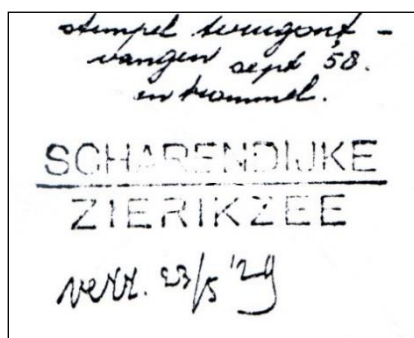 stempel terugont-
vangen sept '58.
in trommel.
SCHARENDIJKE
ZIERIKZEE
verz. 23/5 '29